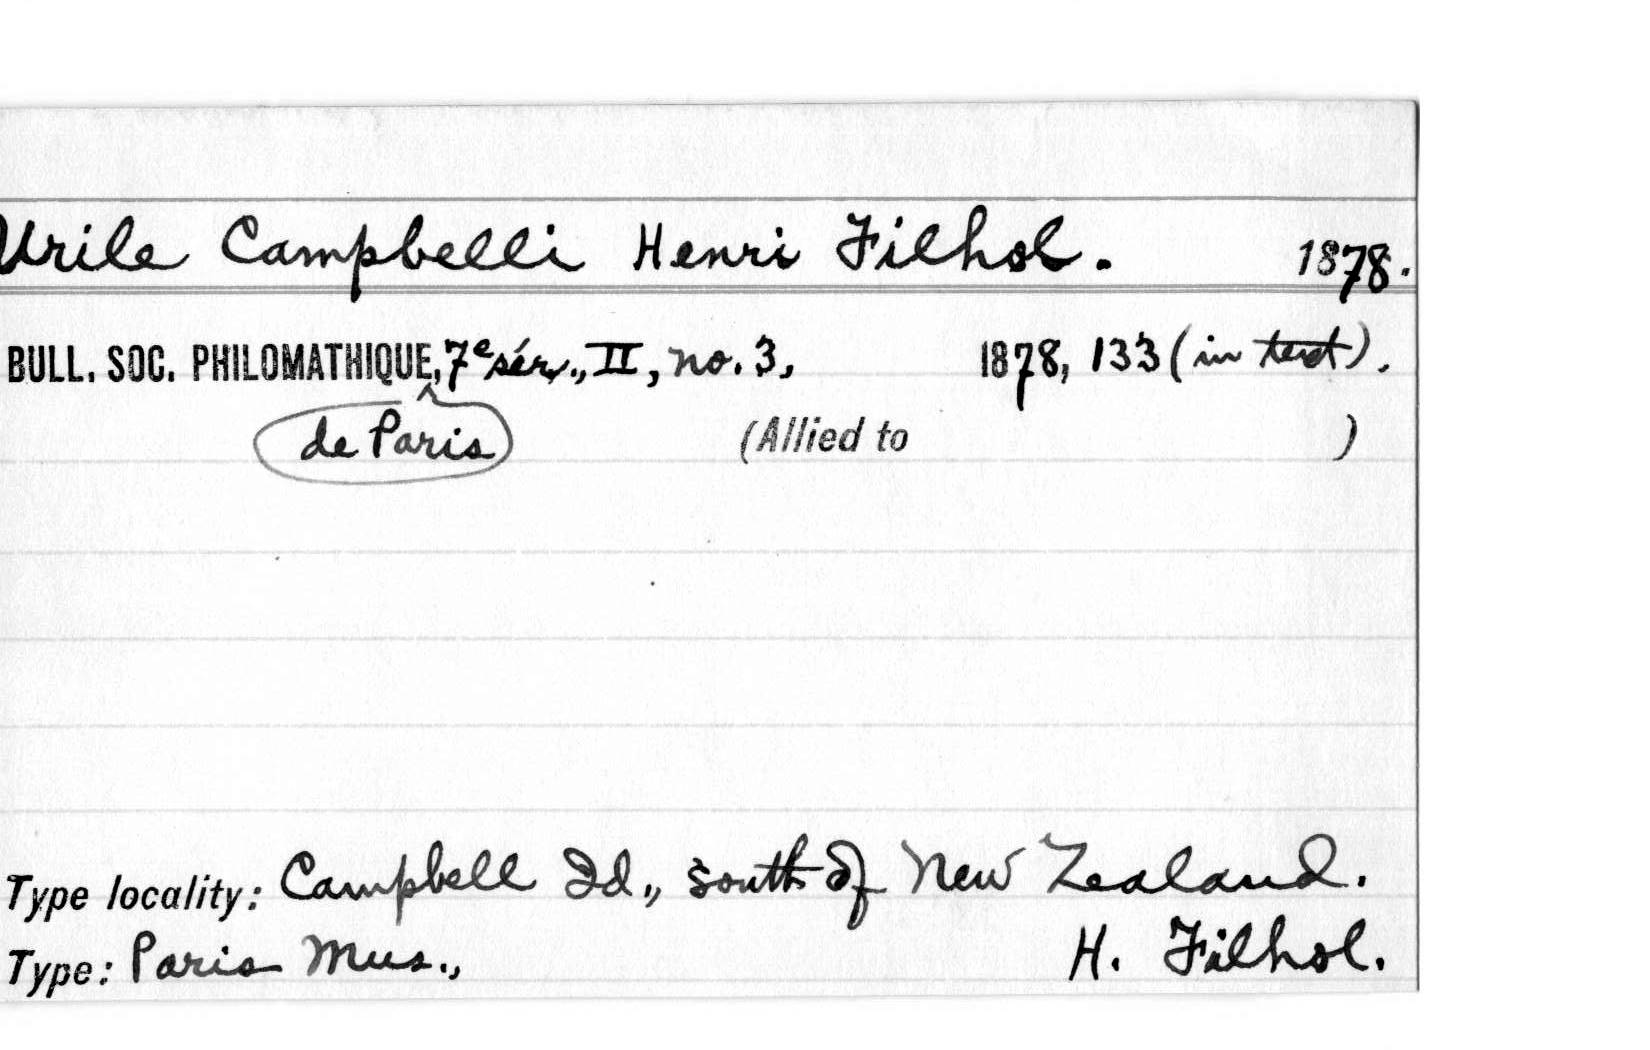 Urile Campbelli Henri Filhol. 1878.
BULL. SOC. PHILOMATHIQUE, 7e sér., II, no. 3, 1878, 133 (in text).
de Paris (Allied to )
Type locality: Campbell Id., south of New Zealand.
Type: Paris Mus., H. Filhol.